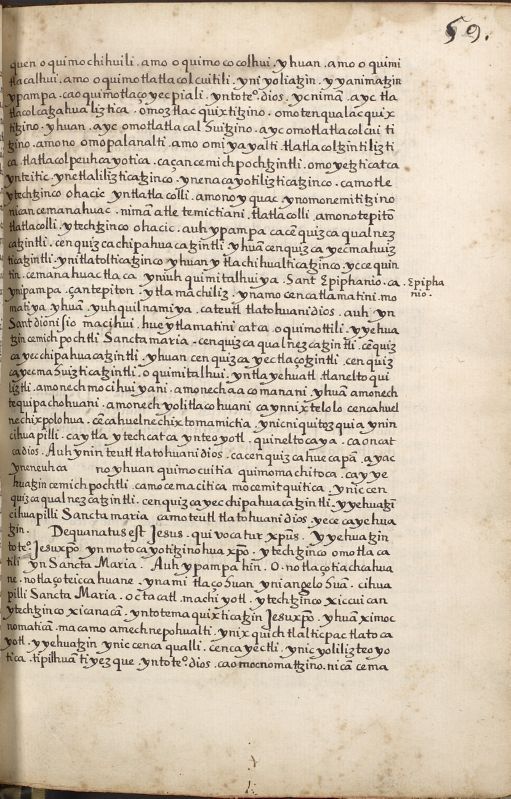 59.
quen oquimochihuili . amo oquimocolhui . yhuan . amo oquimi
tlacalhui . amo oquimotlatlacolcuitili . yni yoliatzin . yyanimatzin
ypampa . ca oquimotlaçoyecpiali . yntoteº. dios . yc nimã . ayc tla
tlacolcatzahualiztica . omoztlacquixtitzino . omotenqualacquix
titzino . yhuan . ayc omotlatlacalhuitzino . ayc omotlatlacolcuiti
tzino . amono omopalanalti . amo omiyayalti . tlatlacoltzintiliztí
ca . tlatlacolpeuhcayotica . caçan cemichpochtzintli . omoyetzticatca
ynteitic . ynetlaliliztícatzinco . ynenacayotiliztícatzinco . camotle
ytechtzinco ohacic yntlatlacolli . amono yquac ynomonemitítzino
nican cemanahuac . nimã atle temictiani . tlatlacolli amono tepitõ
tlatlacolli . ytechtzinco ohacic . auh ypampa ca cẽquizca qualnez
catzintli . cenquizca chipahuacatzintli yhuã cenquizca yecmahuiz
ticatzintli . ynitlatolticatzinco yhuan ytlachihualticatzinco . ycce quin
tin . cemanahuactlaca yniuh quimitalhuiya . Sant Epiphanio . ca
Epipha
nio .
ynipampa . çantepiton . ytlamachiliz . ynamo cencatlamatini . mo
matiya yhuã . yuhquilnamiya . cateutl tlatohuani dios . auh yn
Sant dionisio macihui . huey tlamatini catca . oquimottili . yyehua
tzin cemichpochtli Sancta maria . cenquizca qualnezcatzintli . cẽquiz
ca yecchipahuacatzintli . yhuan cenquizca yectlaçotzintli . cenquiz
ca yecmahuizticatzintli . oquimitalhui . yntla yehuatl . tlaneltoqui
liztli . amo nechmocihuiyani . amo nechaacomanani . yhuã amo nech
tequipachohuani . amo nech yolitlacohuani ca ynnixtelolo cencahuel
nechixpolohua . cẽcahuel nechixtomamictia . ynicniquitozquia ynin
cihuapilli . ca ytla ytechcatca ynteyotl . quineltocaya . ca oncat
ca dios . Auh ynin teutl tlatohuani dios . ca cenquizca huecapã . ayac
yneneuhca no yhuan quimocuitia quimomachitoca . cay ye
huatzin cemichpochtli . camo cemacitica mocemitquitica . ynic cen
quizca qualnezcatzintli . cenquizca yecchipahuacatzintli . yyehuatzĩ
cihuapilli Sancta maria camo teutl tlatohuani dios . yece ca yehua
tzin . Dequa natus est Jesus . qui vocatur xp̃us . yyehuatzin
toteº. Jesuxpõ . ynmotocayotitzinohua xpõ . ytechtzinco omotlaca
tili yn Sancta Maria . Auh ypampa hin . O . notlaçotiachcahua
ne . notlaçoteiccahuane . ynami tlaçohuan yniangelohuã . cihua
pilli Sancta Maria . octacatl . machiyotl . ytechtzinco xiccuican
ytechtzinco xicanacã . yntotemaquixticatzin Jesuxpõ . yhuã ximoc
nomaticã . macamo amechnepohualti . ynixquich tlalticpactlatoca
yotl . yyehuatzin ynic cenca qualli . cenca yectli . ynic yoliliz teoyo
tica . tipilhuã tiyezque . yntoteº. dios . ca omocnomattzino . nicã cema